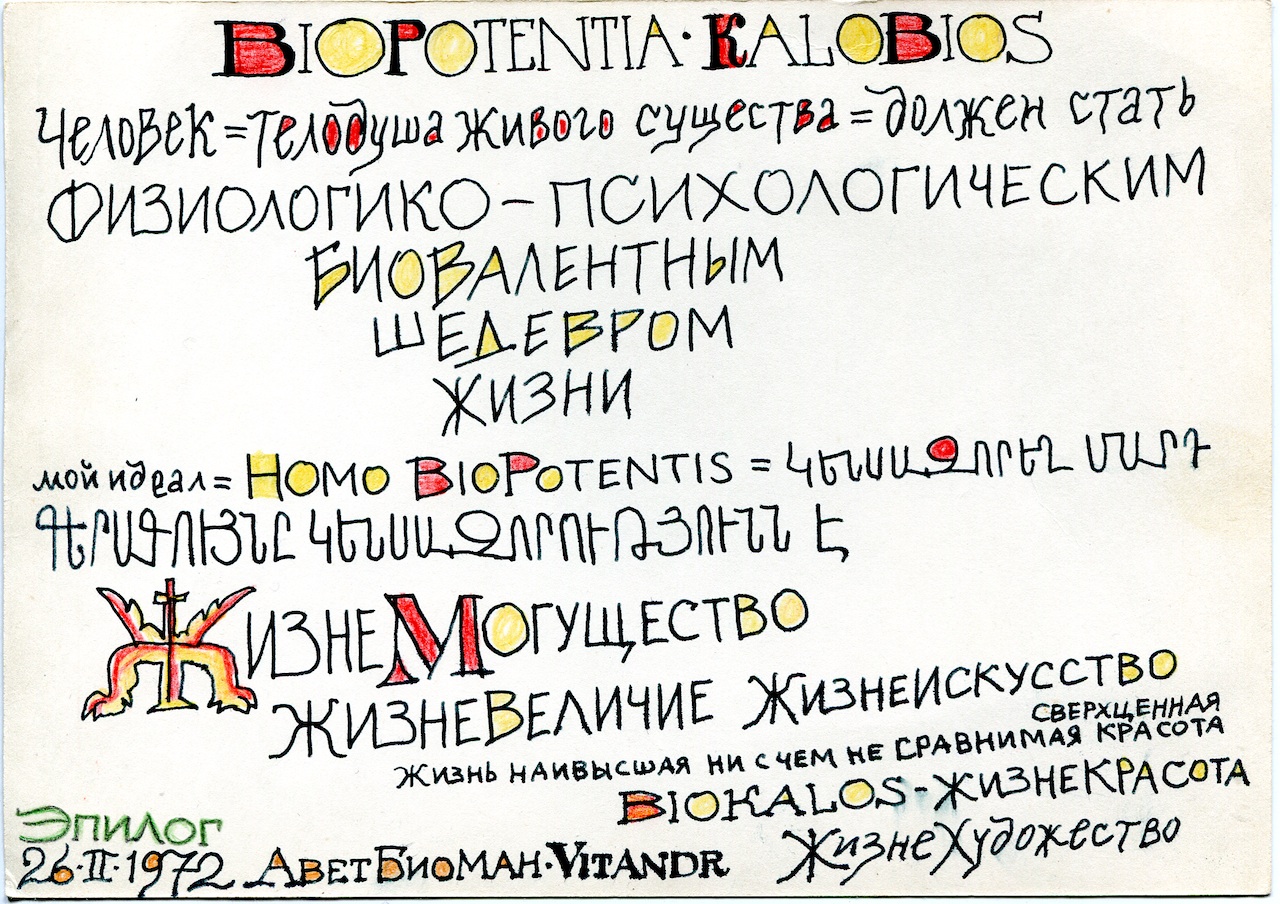 BIOPOTENTIA·KALOBIOS
Человек = телодуша живого существа = должен стать
ФИЗИОЛОГИКО – ПСИХОЛОГИЧЕСКИМ
БИОВАЛЕНТНЫМ
ШЕДЕВРОМ
ЖИЗНИ
мой идеал = HOMO BIOPOTENTIS = ԿԵՆՍԱԶՈՐԵՂ ՄԱՐԴ
ԳԵՐԱԳՈՒՅՆԸ ԿԵՆՍԱԶՈՐՈՒԹՅՈՒՆՆ Է
ЖИЗНЕМОГУЩЕСТВО
ЖИЗНЕВЕЛИЧИЕ ЖИЗНЕИСКУССТВО
СВЕРХЦЕННАЯ
ЖИЗНЬ НАИВЫСШАЯ НИ С ЧЕМ НЕ СРАВНИМАЯ КРАСОТА
BIOKALOS-ЖИЗНЕКРАСОТА
ЭПИЛОГ
ЖизнеХудожество
26·II·1972 АВЕТБИОМАН·VITANDR